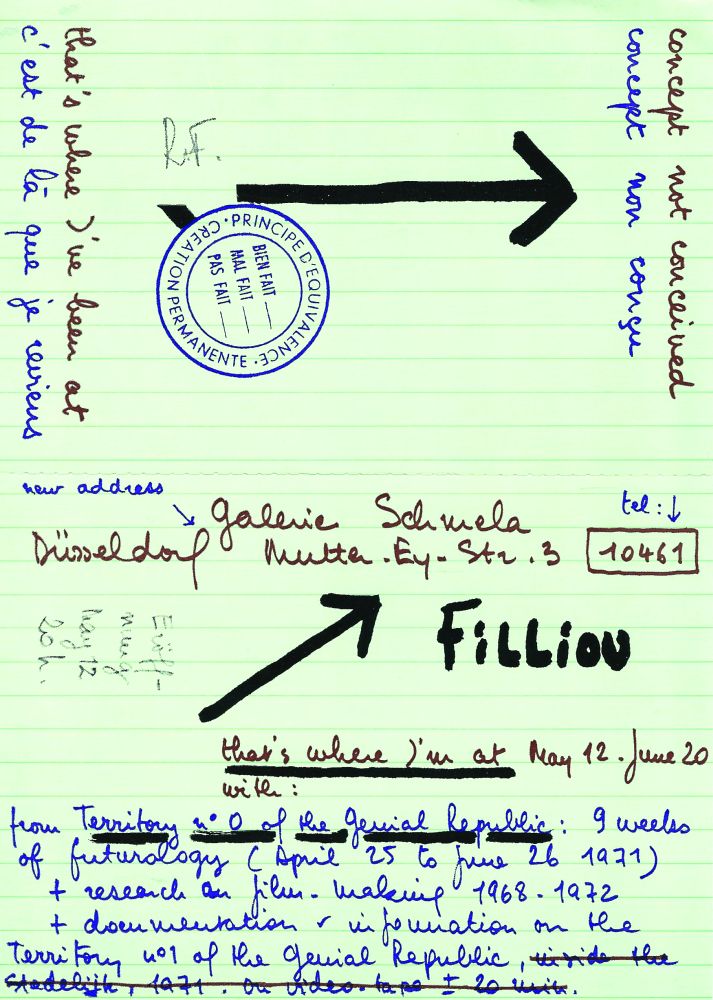 concept not conceived
concept non conçu
that's where I've been at
c'est de là que je reviens
R.F.
PRINCIPE D'EQUIVALENCE · CREATION PERMANENTE ·
BIEN FAIT —
MAL FAIT —
PAS FAIT —
new address
tel:
Galerie Schmela
Düsseldorf Mutter-Ey-Str. 3 10461
Eröff-
nung
May 12
20 h.
FiLLiOU
that's where I'm at May 12 - June 20
with:
from Territory n° 0 of the Genial Republic: 9 weeks
of futuralogy (April 25 to June 26 1971)
+ research on film-making 1968-1972
+ documentation & information on the
Territory n°1 of the Genial Republic, inside the
Stedelijk, 1971. on video-tape ± 20 min.